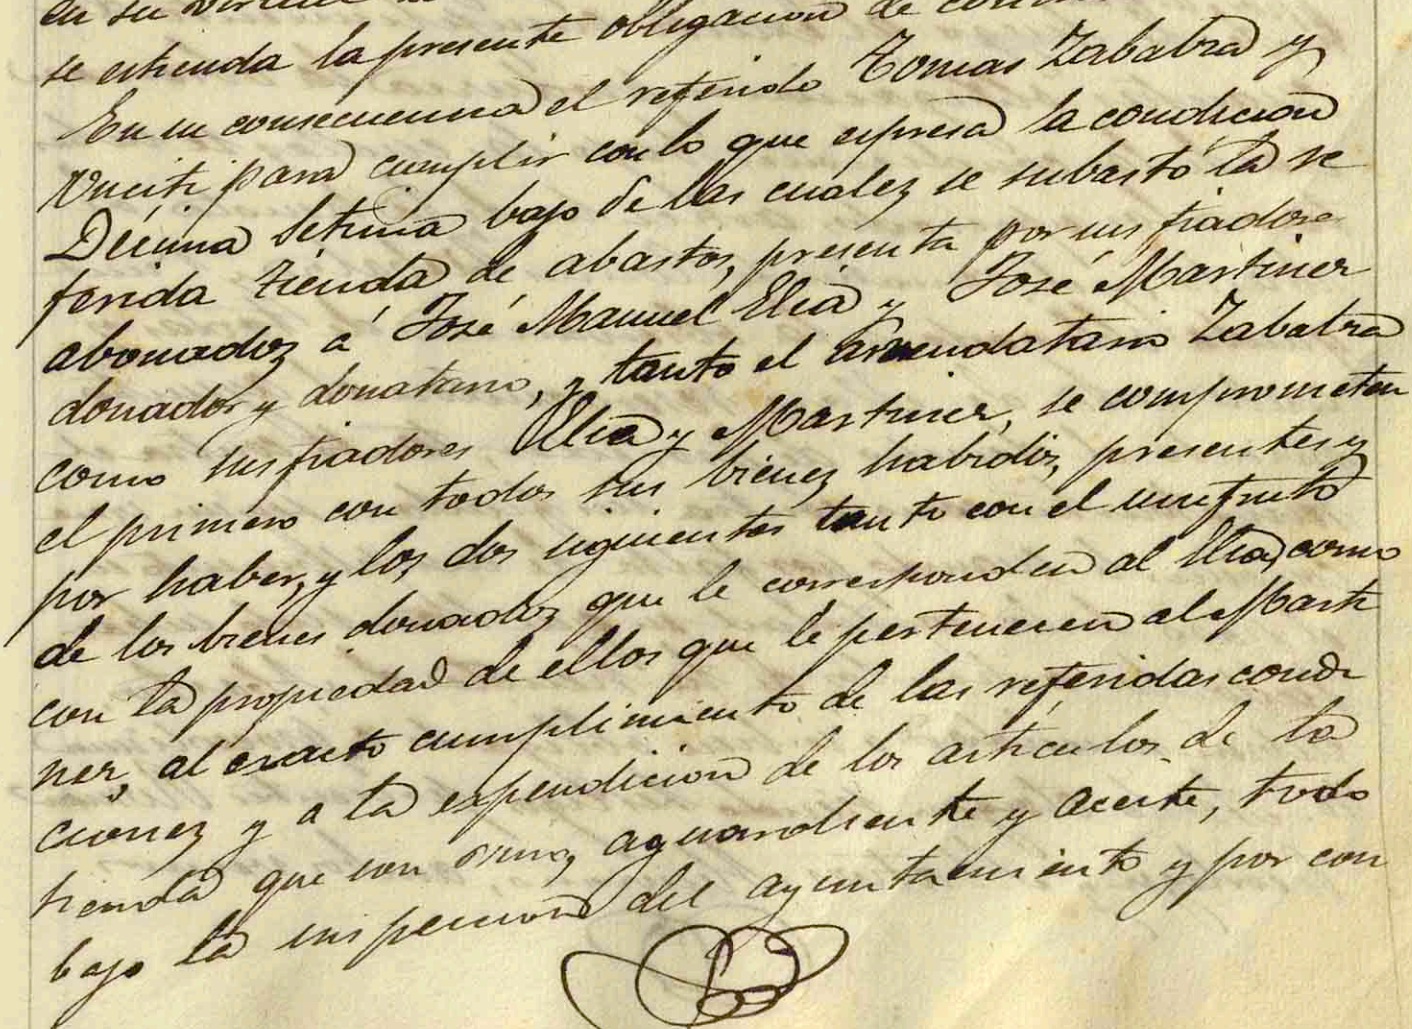 en su virtud
se estienda la presente obligacion de
En su consecuencia el referido Tomas Zabalza y
Vuciti para cumplir con lo que espresa la condicion
Décima Setima bajo de las cualez se subastó la re
ferida tienda de abastos, presenta por sus fiadores
abonadoz á José Manuel Elia y José Martinez
donador y donatario, y tanto el arrendatario Zabalza
como sus fiadores Elia y Martinez, se comprometen
el primero con todos sus bienez habidos, presentes y
por haber, y los dos siguientes tanto con el usufruto
de los bienes donadoz que le corresponden al Elia, como
con la propiedad de ellos que le pertenecen al Marti
nez, al exacto cumplimiento de las referidas condi
cionez y a la espendicion de los articulos de la
tienda que son vino, aguardiente y aceite, todo
bajo la inspeccion del ayuntamiento y por con